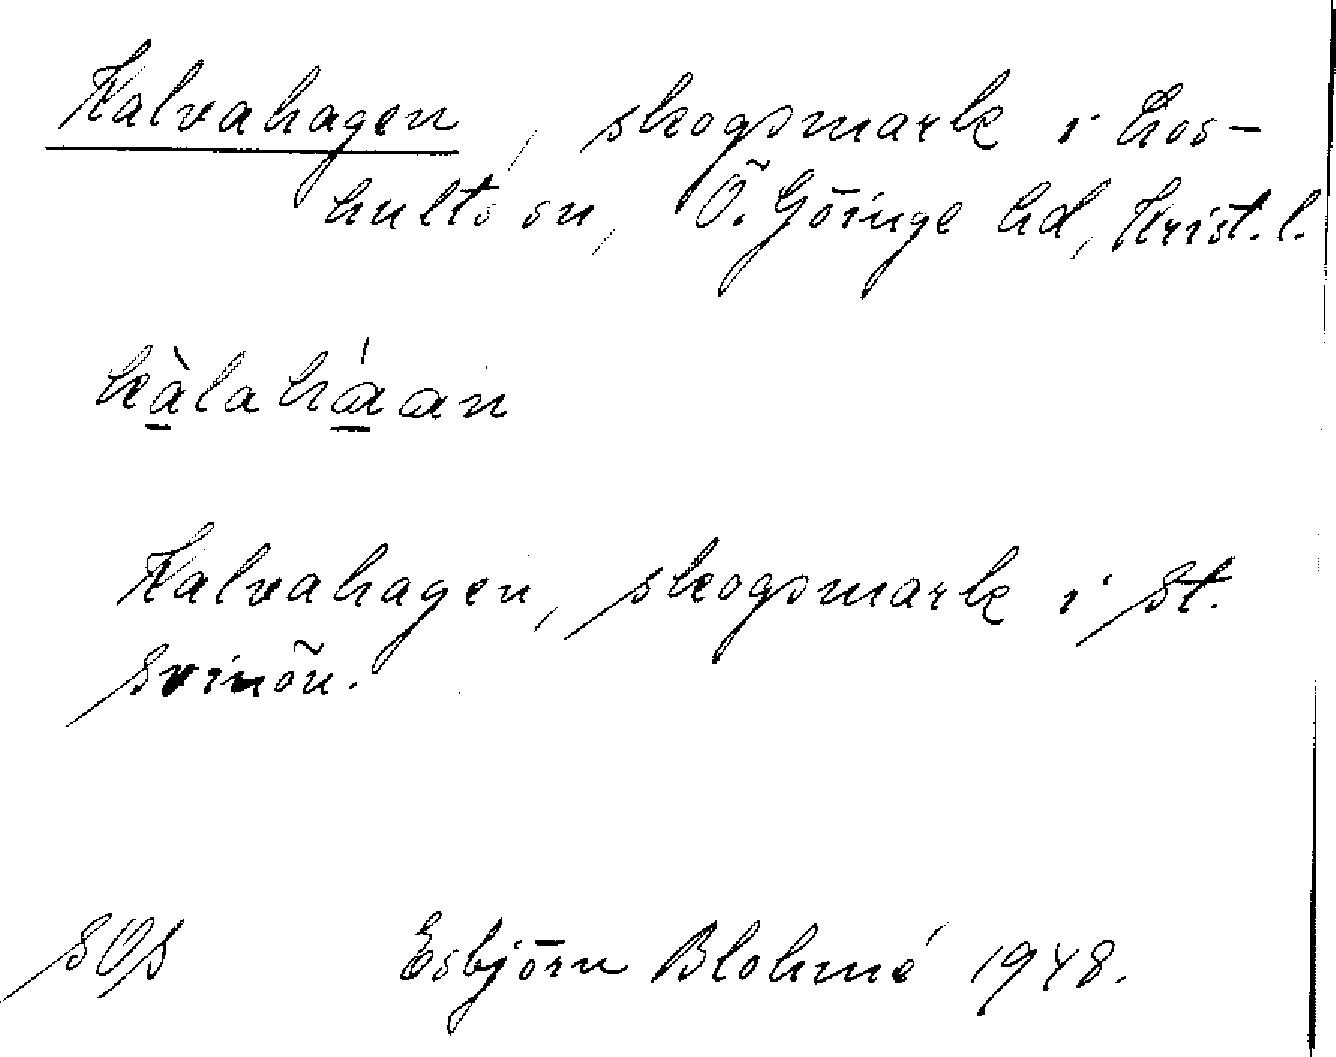 Kalvahagen, skogsmark i Los-
hults sn, Ö. Göinge hd, Krist. l.
kàlaháan
Kalvahagen, skogsmark i St.
Svinön.
SOS Esbjörn Blohmé 1948.